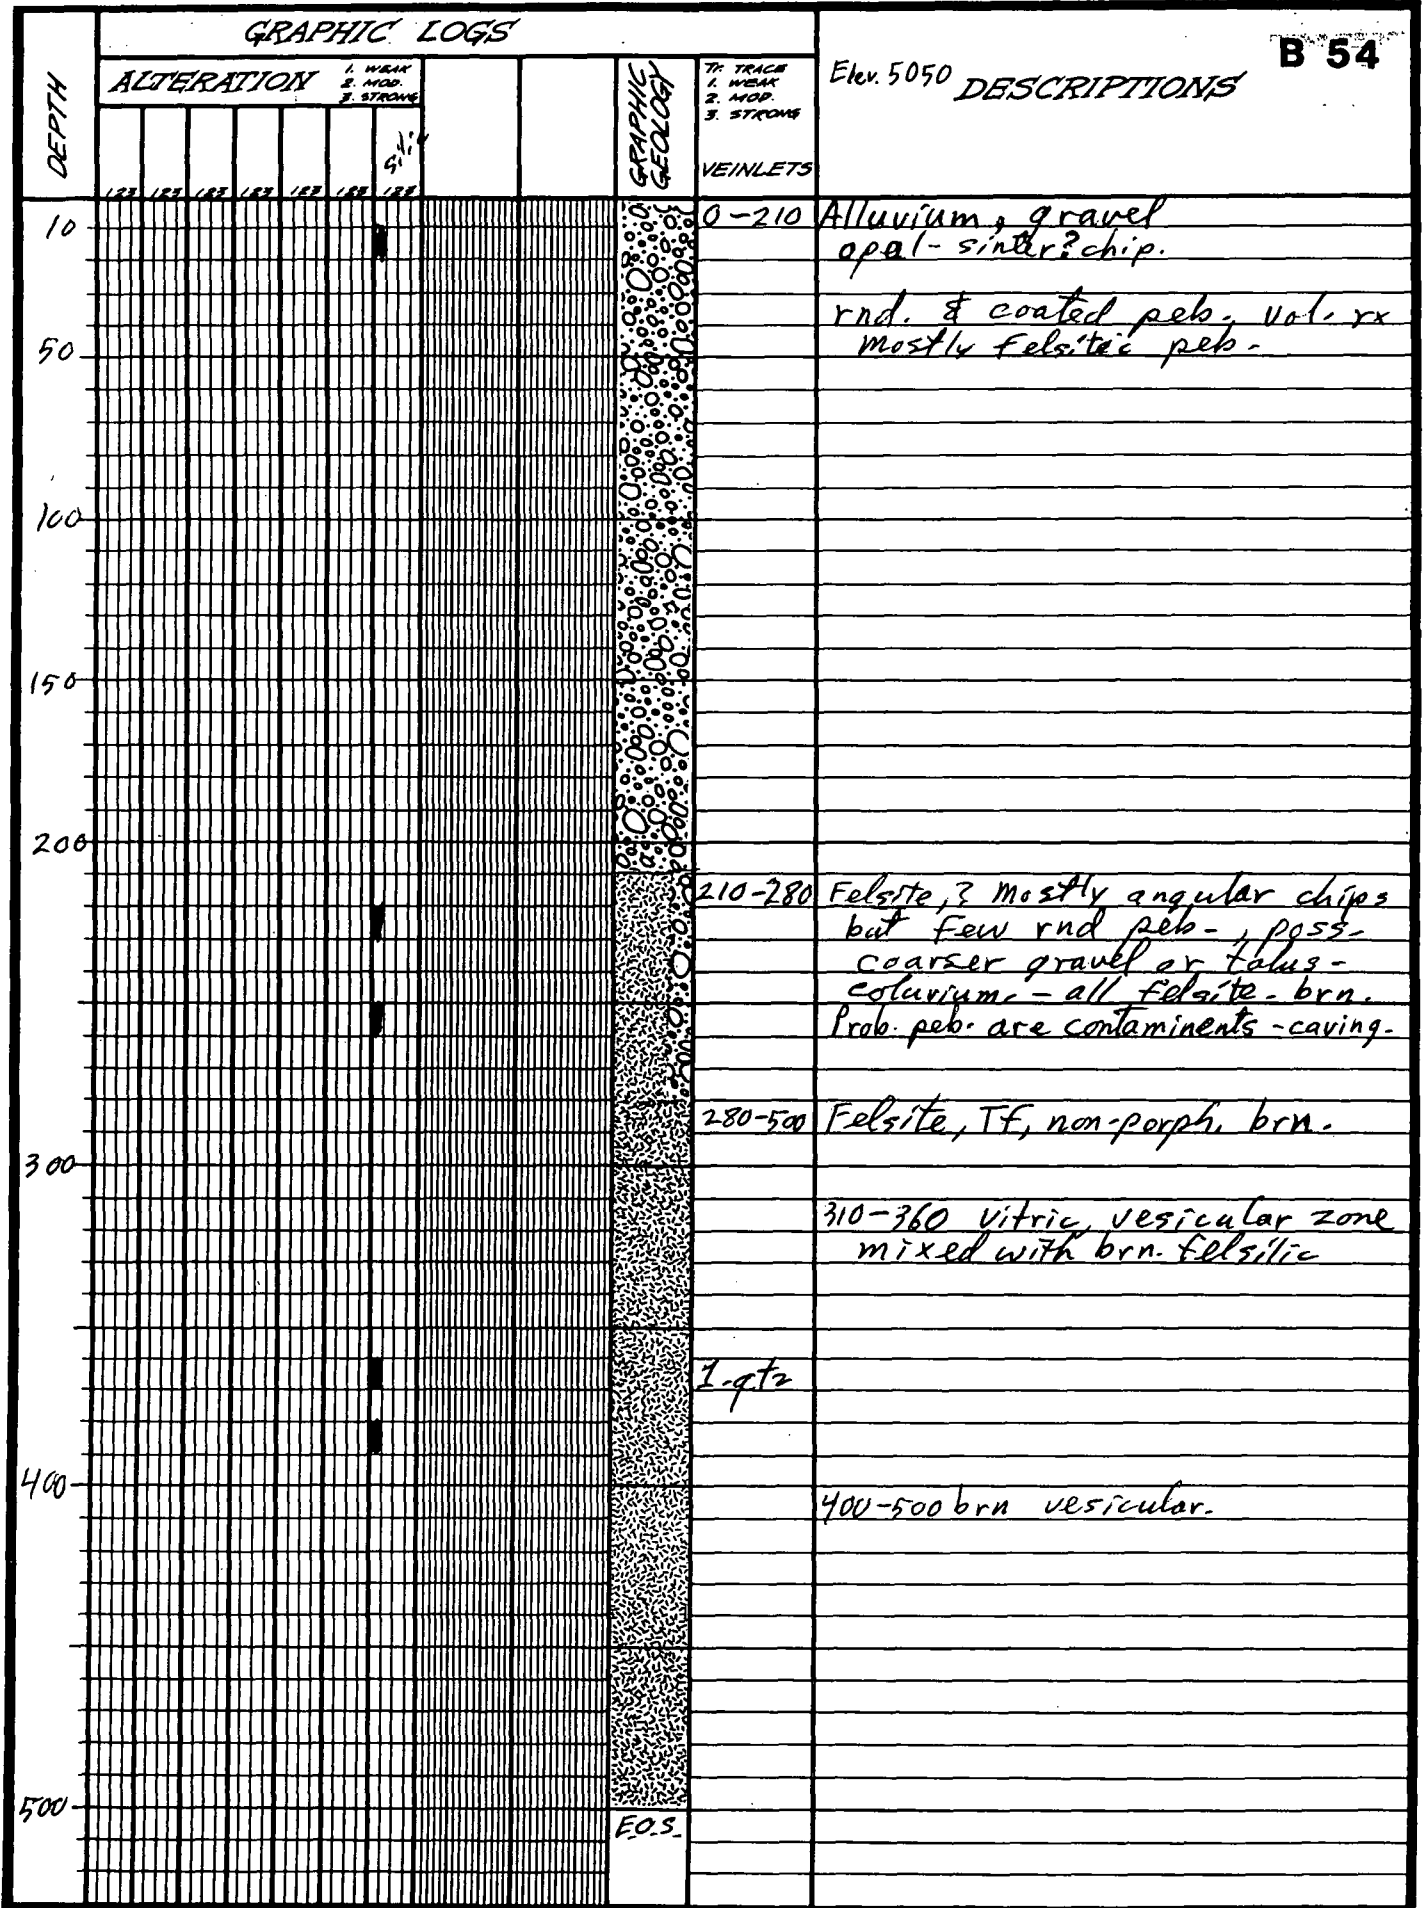 GRAPHIC LOGS
B 54
DEPTH
ALTERATION
1. WEAK
2. MOD.
3. STRONG
GRAPHIC GEOLOGY
Tr. TRACE
1. WEAK
2. MOD.
3. STRONG
VEINLETS
Elev. 5050 DESCRIPTIONS
123 123 123 123 123 123 123
10
0-210 Alluvium, gravel
opal - sinter? chip.
rnd. & coated peb. vol. rx
50
mostly felsitic peb.
100
150
200
210-280 Felsite,? mostly angular chips
but few rnd peb-, poss.
coarser gravel or talus-
coluvium. - all felsite - brn.
Prob. peb. are contaminents - caving.
280-500 Felsite, Tf, non-porph. brn.
300
310-360 vitric, vesicular zone
mixed with brn. felsitic
1-qtz
400
400-500 brn vesicular.
500
E.O.S.